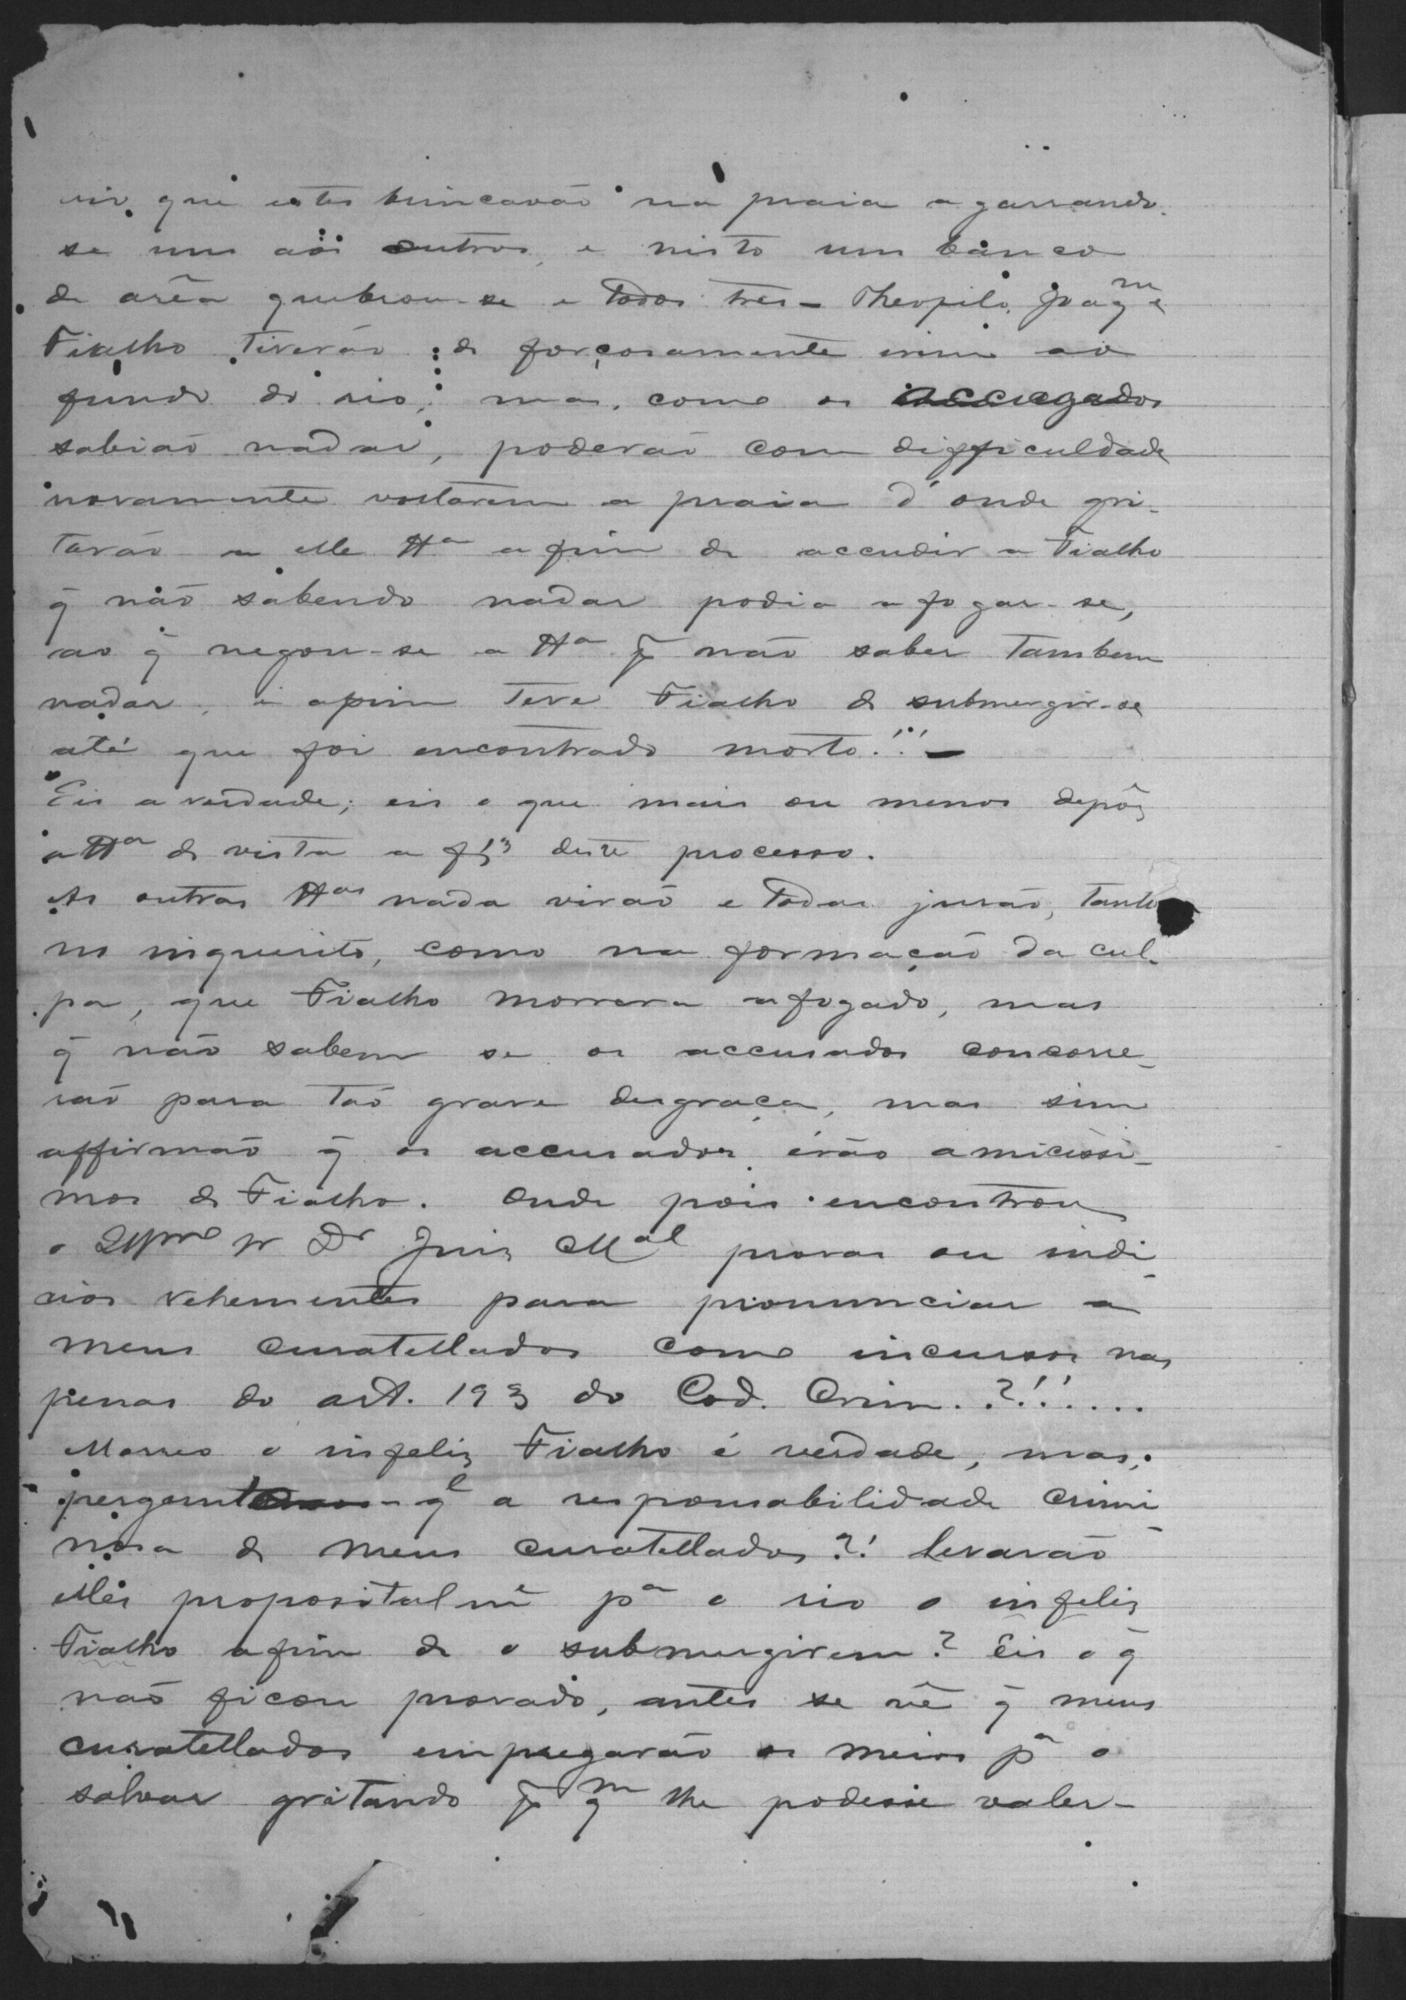 vio que estes brincavão na praia agarrando-
se uns aos outros, e nisto um banco
de arêa quebrou-se e todos tres - Theopilo, Joaqm e
Fialho tiverão de forçosamente irem ao
fundo do rio; mas, como os accusados
sabião nadar, poderão com difficuldade
novamente voltarem a praia d'onde gri-
tarão a elle tta afim de accudir a Fialho
q̃ não sabendo nadar podia afogar-se,
ao q̃ negou-se a tta p̃ não saber tambem
nadar, e assim teve Fialho de submergir-se
até que foi encontrado morto!!! -
Eis a verdade; eis o que mais ou menos depôz
a tta de vista a fl 3 deste processo.
As outras ttas nada virão e todas jurão, tanto
no inquerito, como na formação da cul-
pa, que Fialho morrera afogado, mas
q̃ não sabem se os accusados concorre-
rão para tão grave desgraça, mas sim
affirmão q̃ os accusados erão amicissi-
mos de Fialho. Onde pois encontrou
o Illmo Sr Dr Juiz Mal provas ou indi-
cios vehementes para pronunciar a
meus curatellados como incursos nas
penas do art. 193 do Cod. Crim. ?!!....
Morreo o infeliz Fialho é verdade, mas,
pergunto - ql a responsabilidade crimi-
nosa de meus curatellados?! Levarão
elles propositalmẽ pa o rio o infeliz
Fialho afim de o submergirem? Eis o q̃
não ficou provado, antes se vê q̃ meus
curatellados empregarão os meios pa o
salvar gritando p̃ qm lhe podesse valer-